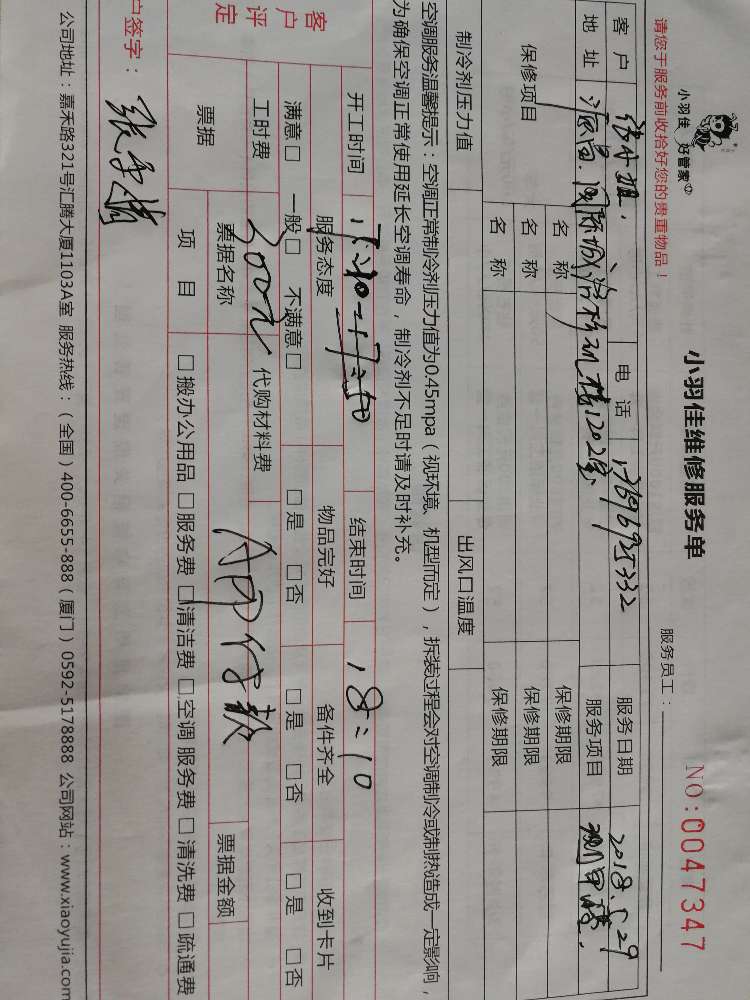 请您于服务前收拾好您的贵重物品！
小羽佳 好管家
小羽佳维修服务单
服务员工：
NO:0047347
客户 电话 17696935332 服务日期 2018.5.29
地址 1202室 服务项目
保修项目 名称 保修期限
名称 保修期限
名称 保修期限
制冷剂压力值 出风口温度
空调服务温馨提示：空调正常制冷剂压力值为0.45mpa（视环境、机型而定），拆装过程会对空调制冷或制热造成一定影响，
为确保空调正常使用延长空调寿命，制冷剂不足时请及时补充。
开工时间 结束时间 18:10
客户评定 服务态度 物品完好 备件齐全 收到卡片
满意□ 一般□ 不满意□ □是 □否 □是 □否 □是 □否
工时费 200元 代购材料费
票据 票据名称 APP付款 票据金额
项目 □搬办公用品 □服务费 □清洁费 □空调服务费 □清洗费 □疏通费
户签字：
公司地址：嘉禾路321号汇腾大厦1103A室 服务热线：（全国）400-6655-888（厦门）0592-5178888 公司网站：www.xiaoyujia.com